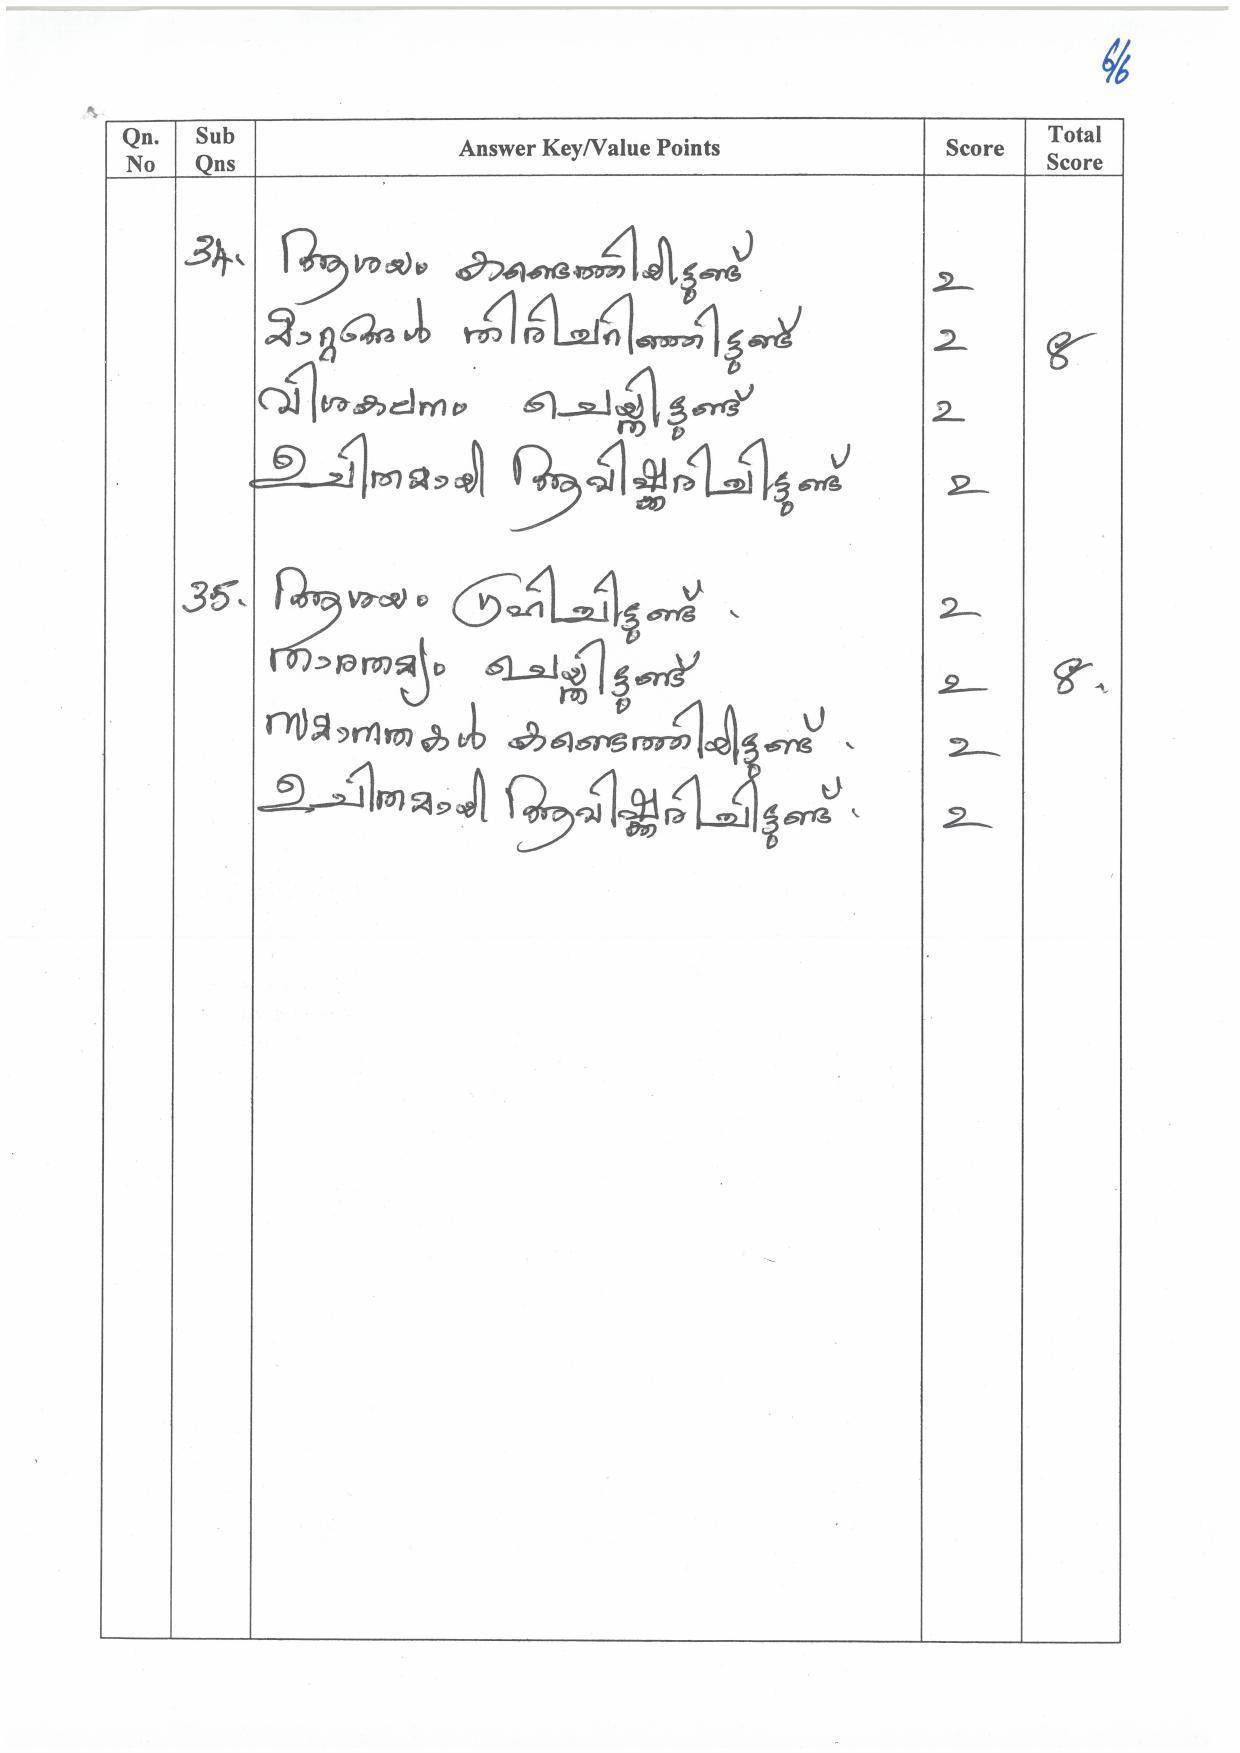 6/6
Qn. No Sub Qns Answer Key/Value Points Score Total Score
34. ആശയം കണ്ടെത്തിയിട്ടുണ്ട് 2
മാറ്റങ്ങൾ തിരിച്ചറിഞ്ഞിട്ടുണ്ട് 2 8
വിശകലനം ചെയ്തിട്ടുണ്ട് 2
ഉചിതമായി ആവിഷ്ക്കരിച്ചിട്ടുണ്ട് 2
35. ആശയം ഗ്രഹിച്ചിട്ടുണ്ട്. 2
താരതമ്യം ചെയ്തിട്ടുണ്ട് 2 8.
സമാനതകൾ കണ്ടെത്തിയിട്ടുണ്ട്. 2
ഉചിതമായി ആവിഷ്ക്കരിച്ചിട്ടുണ്ട്. 2